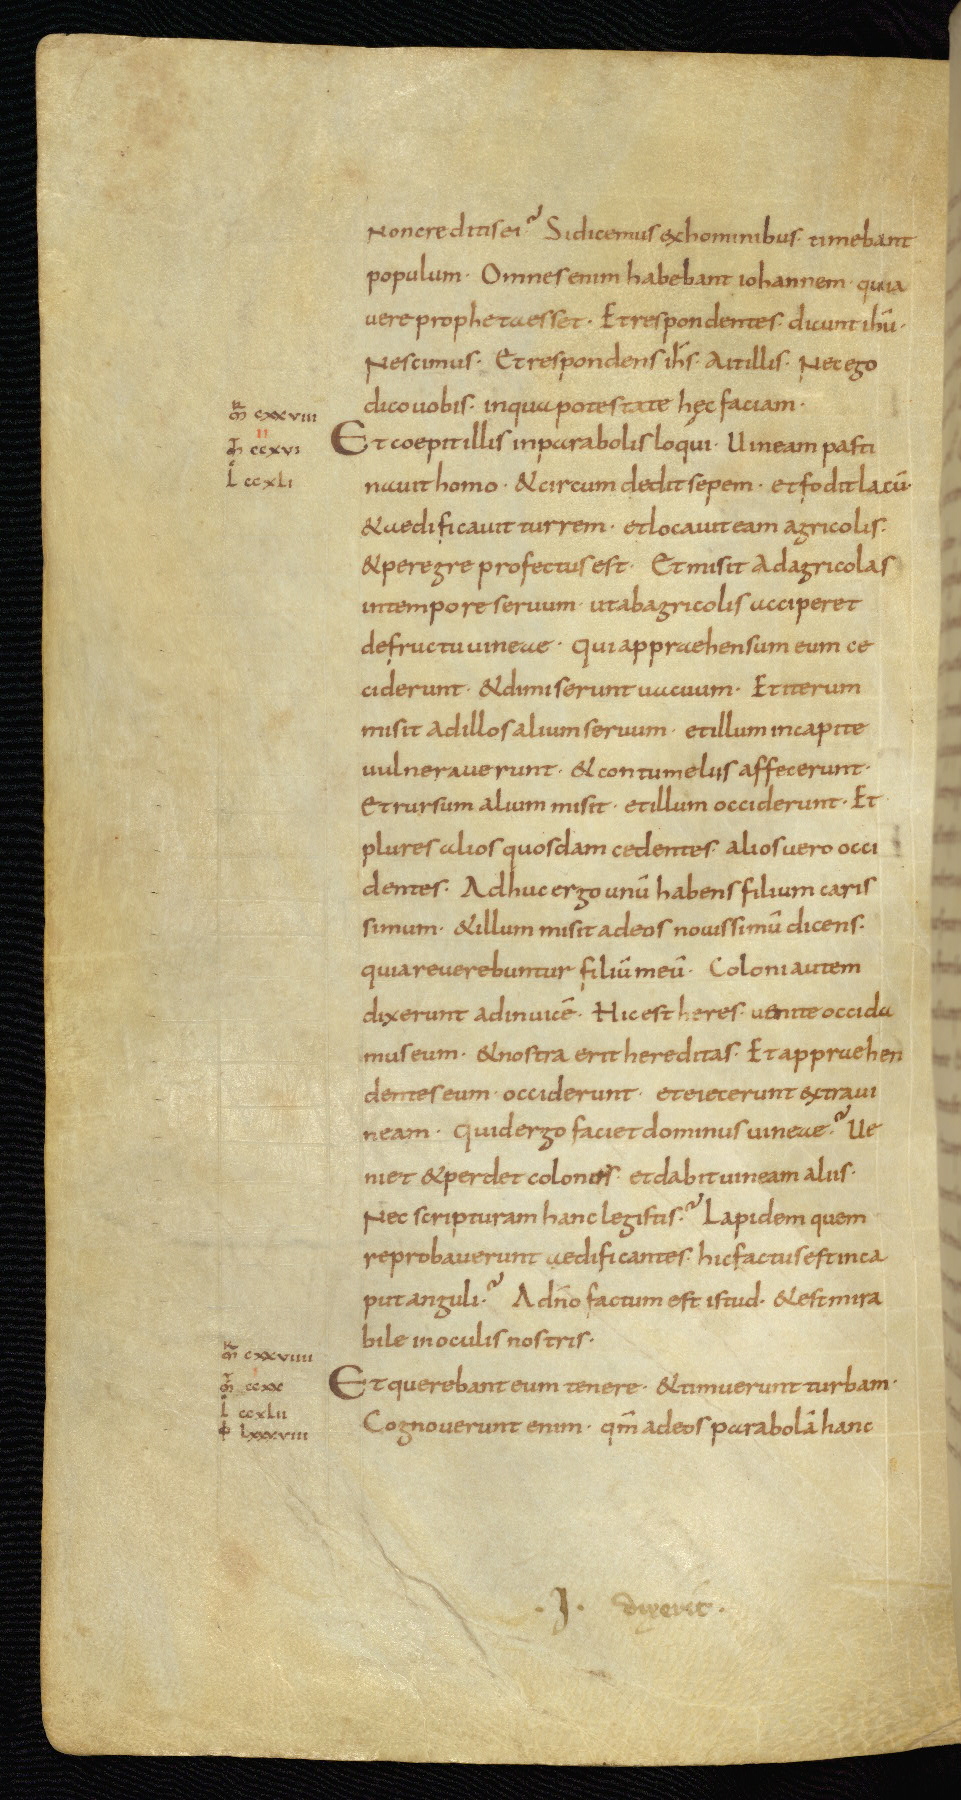 Non creditis ei? Si dicemus ex hominibus· timebant
populum· Omnes enim habebant iohannem· quia
uere propheta esset· Et respondentes· dicunt ihū·
Nescimus· Et respondens ihs̄· Ait illis· Nec ego
dico uobis· in qua potestate hęc faciam·
m̄r cxxviii
Et coepit illis in parabolis loqui· Uineam pasti
II
m̄t ccxvi
nauit homo· & circumdedit sepem· et fodit lacū·
L ccxli
& aedificauit turrem· et locauit eam agricolis·
& peregre profectus est· Et misit ad agricolas
in tempore seruum· ut ab agricolis acciperet
de fructu uineae· Qui appraehensum eum ce
ciderunt· & dimiserunt uacuum· Et iterum
misit ad illos alium seruum· et illum in capite
uulnerauerunt· & contumeliis affecerunt·
Et rursum alium misit· et illum occiderunt· Et
plures alios quosdam cedentes· alios uero occi
dentes· Adhuc ergo unū habens filium caris
simum· & illum misit ad eos nouissimū dicens·
quia reuerebuntur filiū meū· Coloni autem
dixerunt ad inuicē· Hic est heres· uenite occida
mus eum· & nostra erit hereditas· Et appraehen
dentes eum· occiderunt· et eiecerunt extra ui
neam· Quid ergo faciet dominus uineae? Ue
niet & perdet colonus· et dabit uineam aliis·
Nec scripturam hanc legistis? Lapidem quem
reprobauerunt aedificantes· hic factus est in ca
put anguli? A dn̄o factum est istud· & est mira
bile in oculis nostris·
m̄r cxxviiii
Et querebant eum tenere· & timuerunt turbam·
I
m̄t ccxx
L ccxlii
Cognouerunt enim· qm̄ ad eos parabolā hanc
lxxxviii
·I· dixerit·